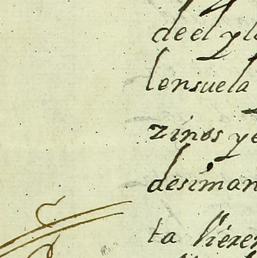 de el y l
lonsuela
zinos y e
desiman
ta hiere